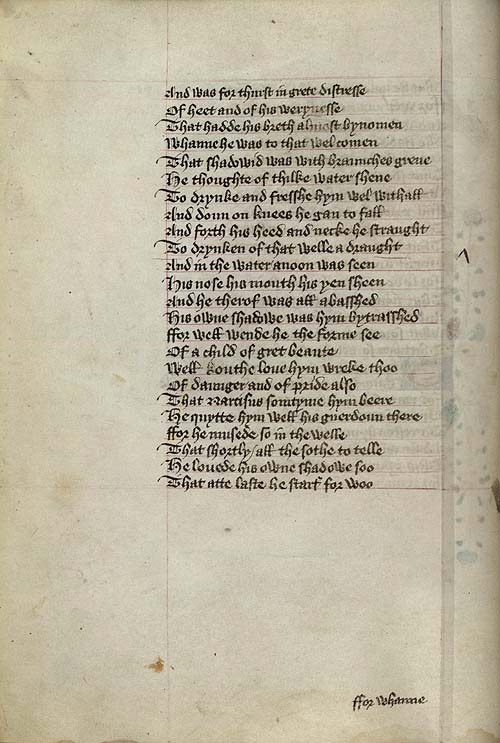 And was for thurst in grete distresse
Of heet and of his werynesse
That hadde his breth almost bynomen
Whanne he was to that welle comen
That shadowid was with braunches grene
He thoughte of thilke water shene
To drynke and fresshe hym wel withall
And doun on knees he gan to fall
And forth his heed and necke he straught
To drynken of that welle a draught
And in the water anoon was seen
His nose his mouth his yen sheen
And he therof was all abasshed
His owne shadowe was hym bytrasshed
ffor well wende he the forme see
Of a child of gret beaute
Well kouthe love hym wreke thoo
Of daunger and of pride also
That Narcisus somtyme hym beere
He quytte hym well his guerdoun there
ffor he musede so in the welle
That shortly all the sothe to telle
He lovede his owne shadowe soo
That atte laste he starf for woo
ffor whanne